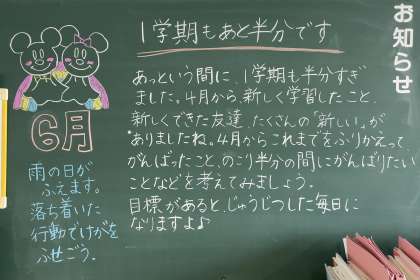 お知らせ
1学期もあと半分です
あっという間に、1学期も半分すぎ
ました。4月から、新しく学習したこと、
新しくできた友達、たくさんの「新しい」が
ありましたね。4月からこれまでをふりかえって、
がんばったこと、のこり半分の間にがんばりたい
ことなどを考えてみましょう。
目標があると、じゅうじつした毎日に
なりますよ♪
6月
雨の日が
ふえます。
落ち着いた
行動でけがを
ふせごう。